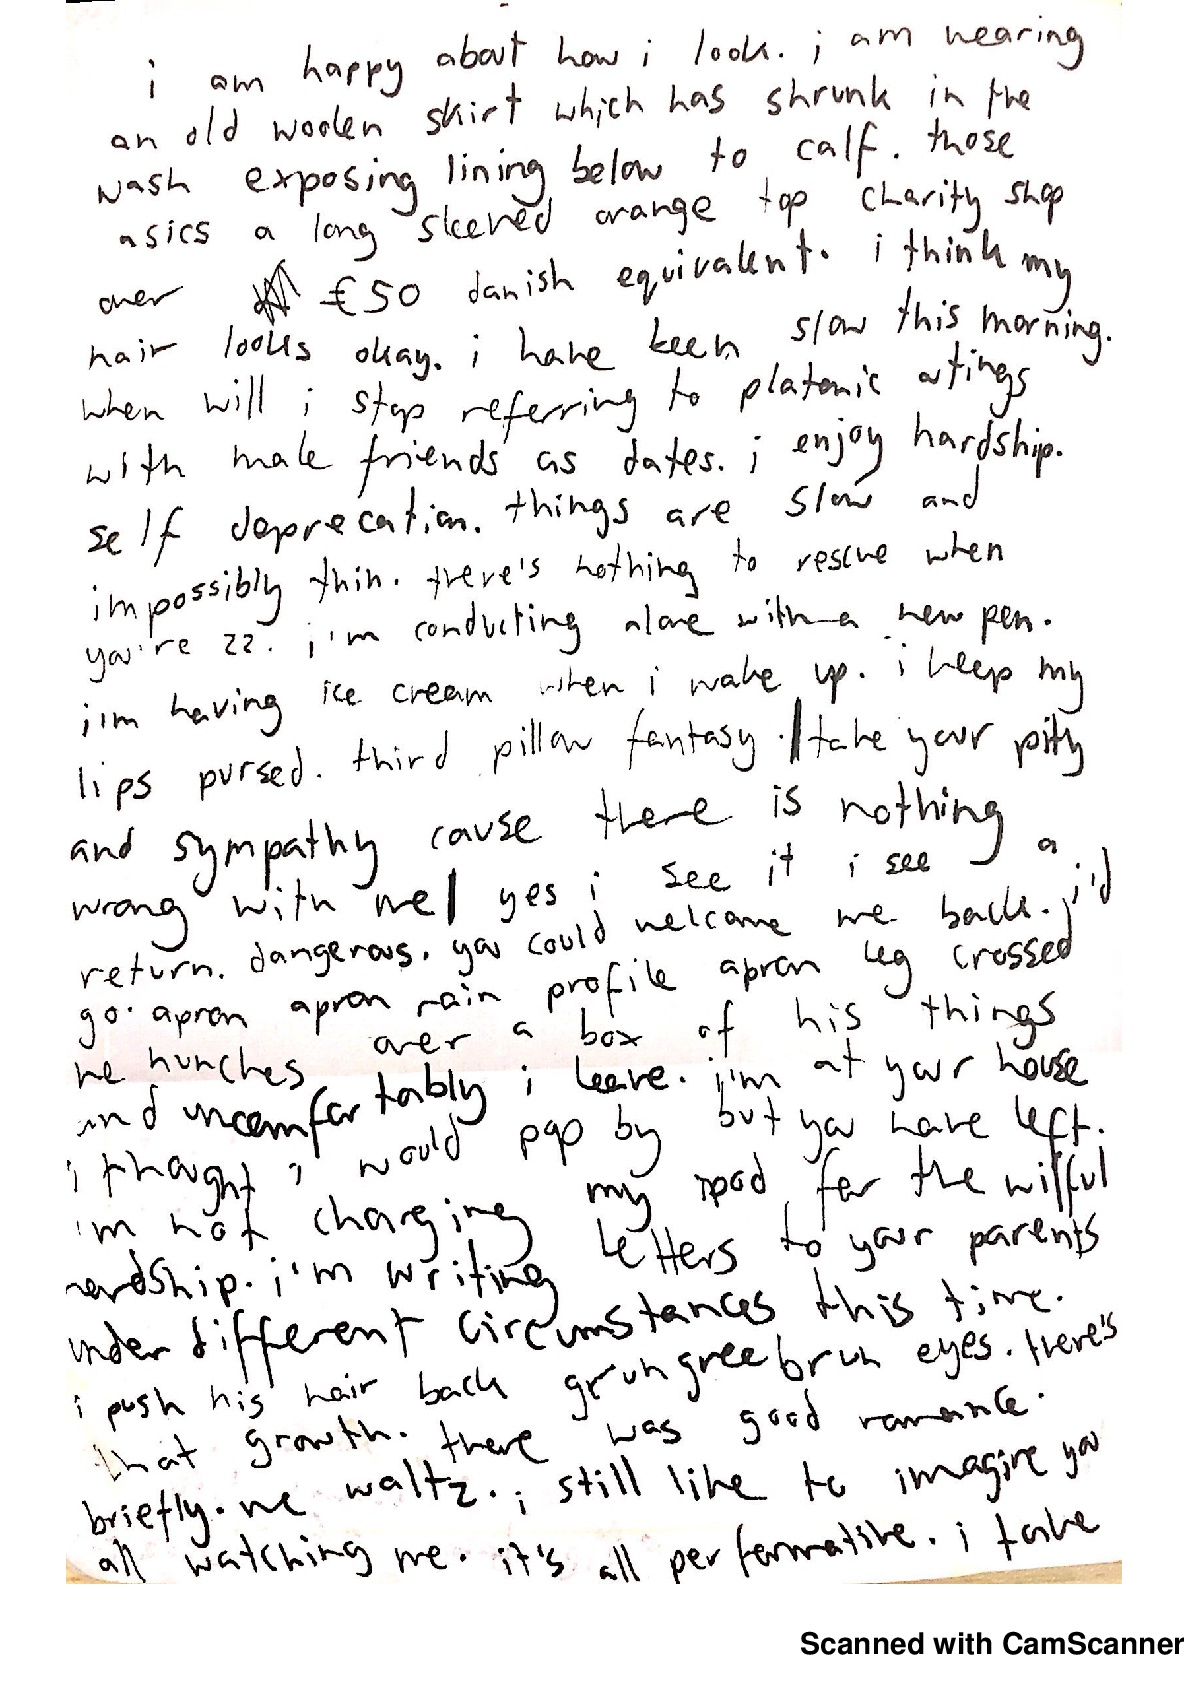 i am happy about how i look. i am wearing
an old woolen skirt which has shrunk in the
wash exposing lining below to calf. those
asics a long sleeved orange top charity shop
over £50 danish equivalent. i think my
hair looks okay. i have been slow this morning.
when will i stop referring to platonic outings
with male friends as dates. i enjoy hardship.
self deprecation. things are slow and
impossibly thin. there's nothing to rescue when
you're 22. i'm conducting alone with a new pen.
i'm having ice cream when i wake up. i keep my
lips pursed. third pillow fantasy. | take your pity
and sympathy cause there is nothing
wrong with me | yes i see it i see a
return. dangerous. you could welcome me back. i'd
go. apron apron rain profile apron leg crossed
he hunches over a box of his things
and uncomfortably i leave. i'm at your house
i thought i would pop by but you have left.
i'm not charging my ipod for the wilful
hardship. i'm writing letters to your parents
under different circumstances this time.
i push his hair back grungreebrun eyes. there's
that growth. there was good romance.
briefly. we waltz. i still like to imagine you
all watching me. it's all performative. i take
Scanned with CamScanner